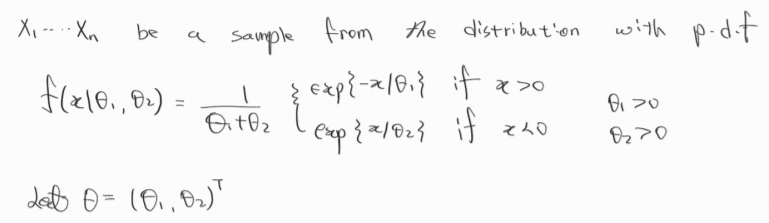 X₁ ---- Xn be a sample from the distribution with p.d.f
f(x|θ₁, θ₂) = 1/(θ₁+θ₂) { exp{-x/θ₁} if x>0 θ₁>0
exp{x/θ₂} if x<0 θ₂>0
let θ = (θ₁, θ₂)ᵀ